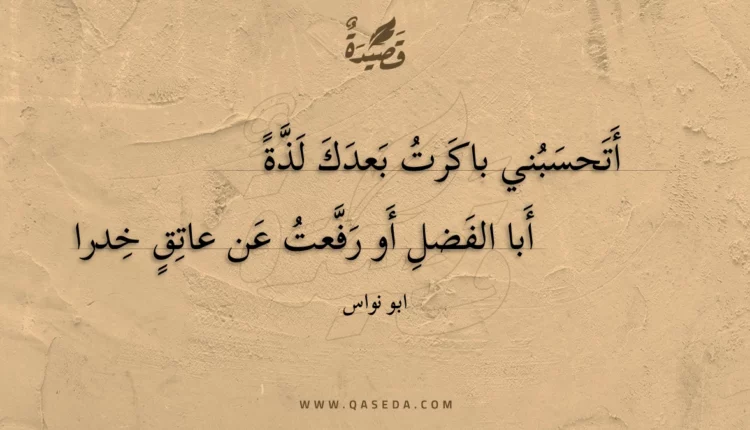 قَصِيدَةٌ
أَتَحسَبُني باكَرتُ بَعدَكَ لَذَّةً
أَبا الفَضلِ أَو رَفَّعتُ عَن عاتِقٍ خِدرا
ابو نواس
WWW.QASEDA.COM